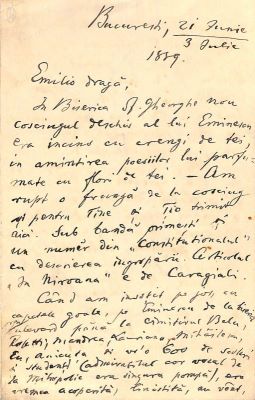 Bucuresti, 21 Iunie
3 Iulie
1889.
Emilio dragă,
In Biserica Sf. Gheorghe nou
cosciugul deschis al lui Eminescu
era incins cu crengi de tei,
in amintirea poesiilor lui parfu-
mate cu flori de tei. — Am
rupt o frunză de la cosciug
și pentru Tine și Tio trimit
aici. Sub bandă primești și
un număr din "Constitutionalul"
cu descrierea ingropării. Articolul
"In Nirvana" e de Caragiali.
Când am insotit pe jos, cu
capetele goale, pe Eminescu de la
bulevard până la cimitirul Balu,
Rosetti, Mandrea, Laurian,
Eu, și vr'o 600 de
și studenți (admirabilul cor vocal de
la Mitropolie era singura pompă), era
vremea acoperită, liniștită, au